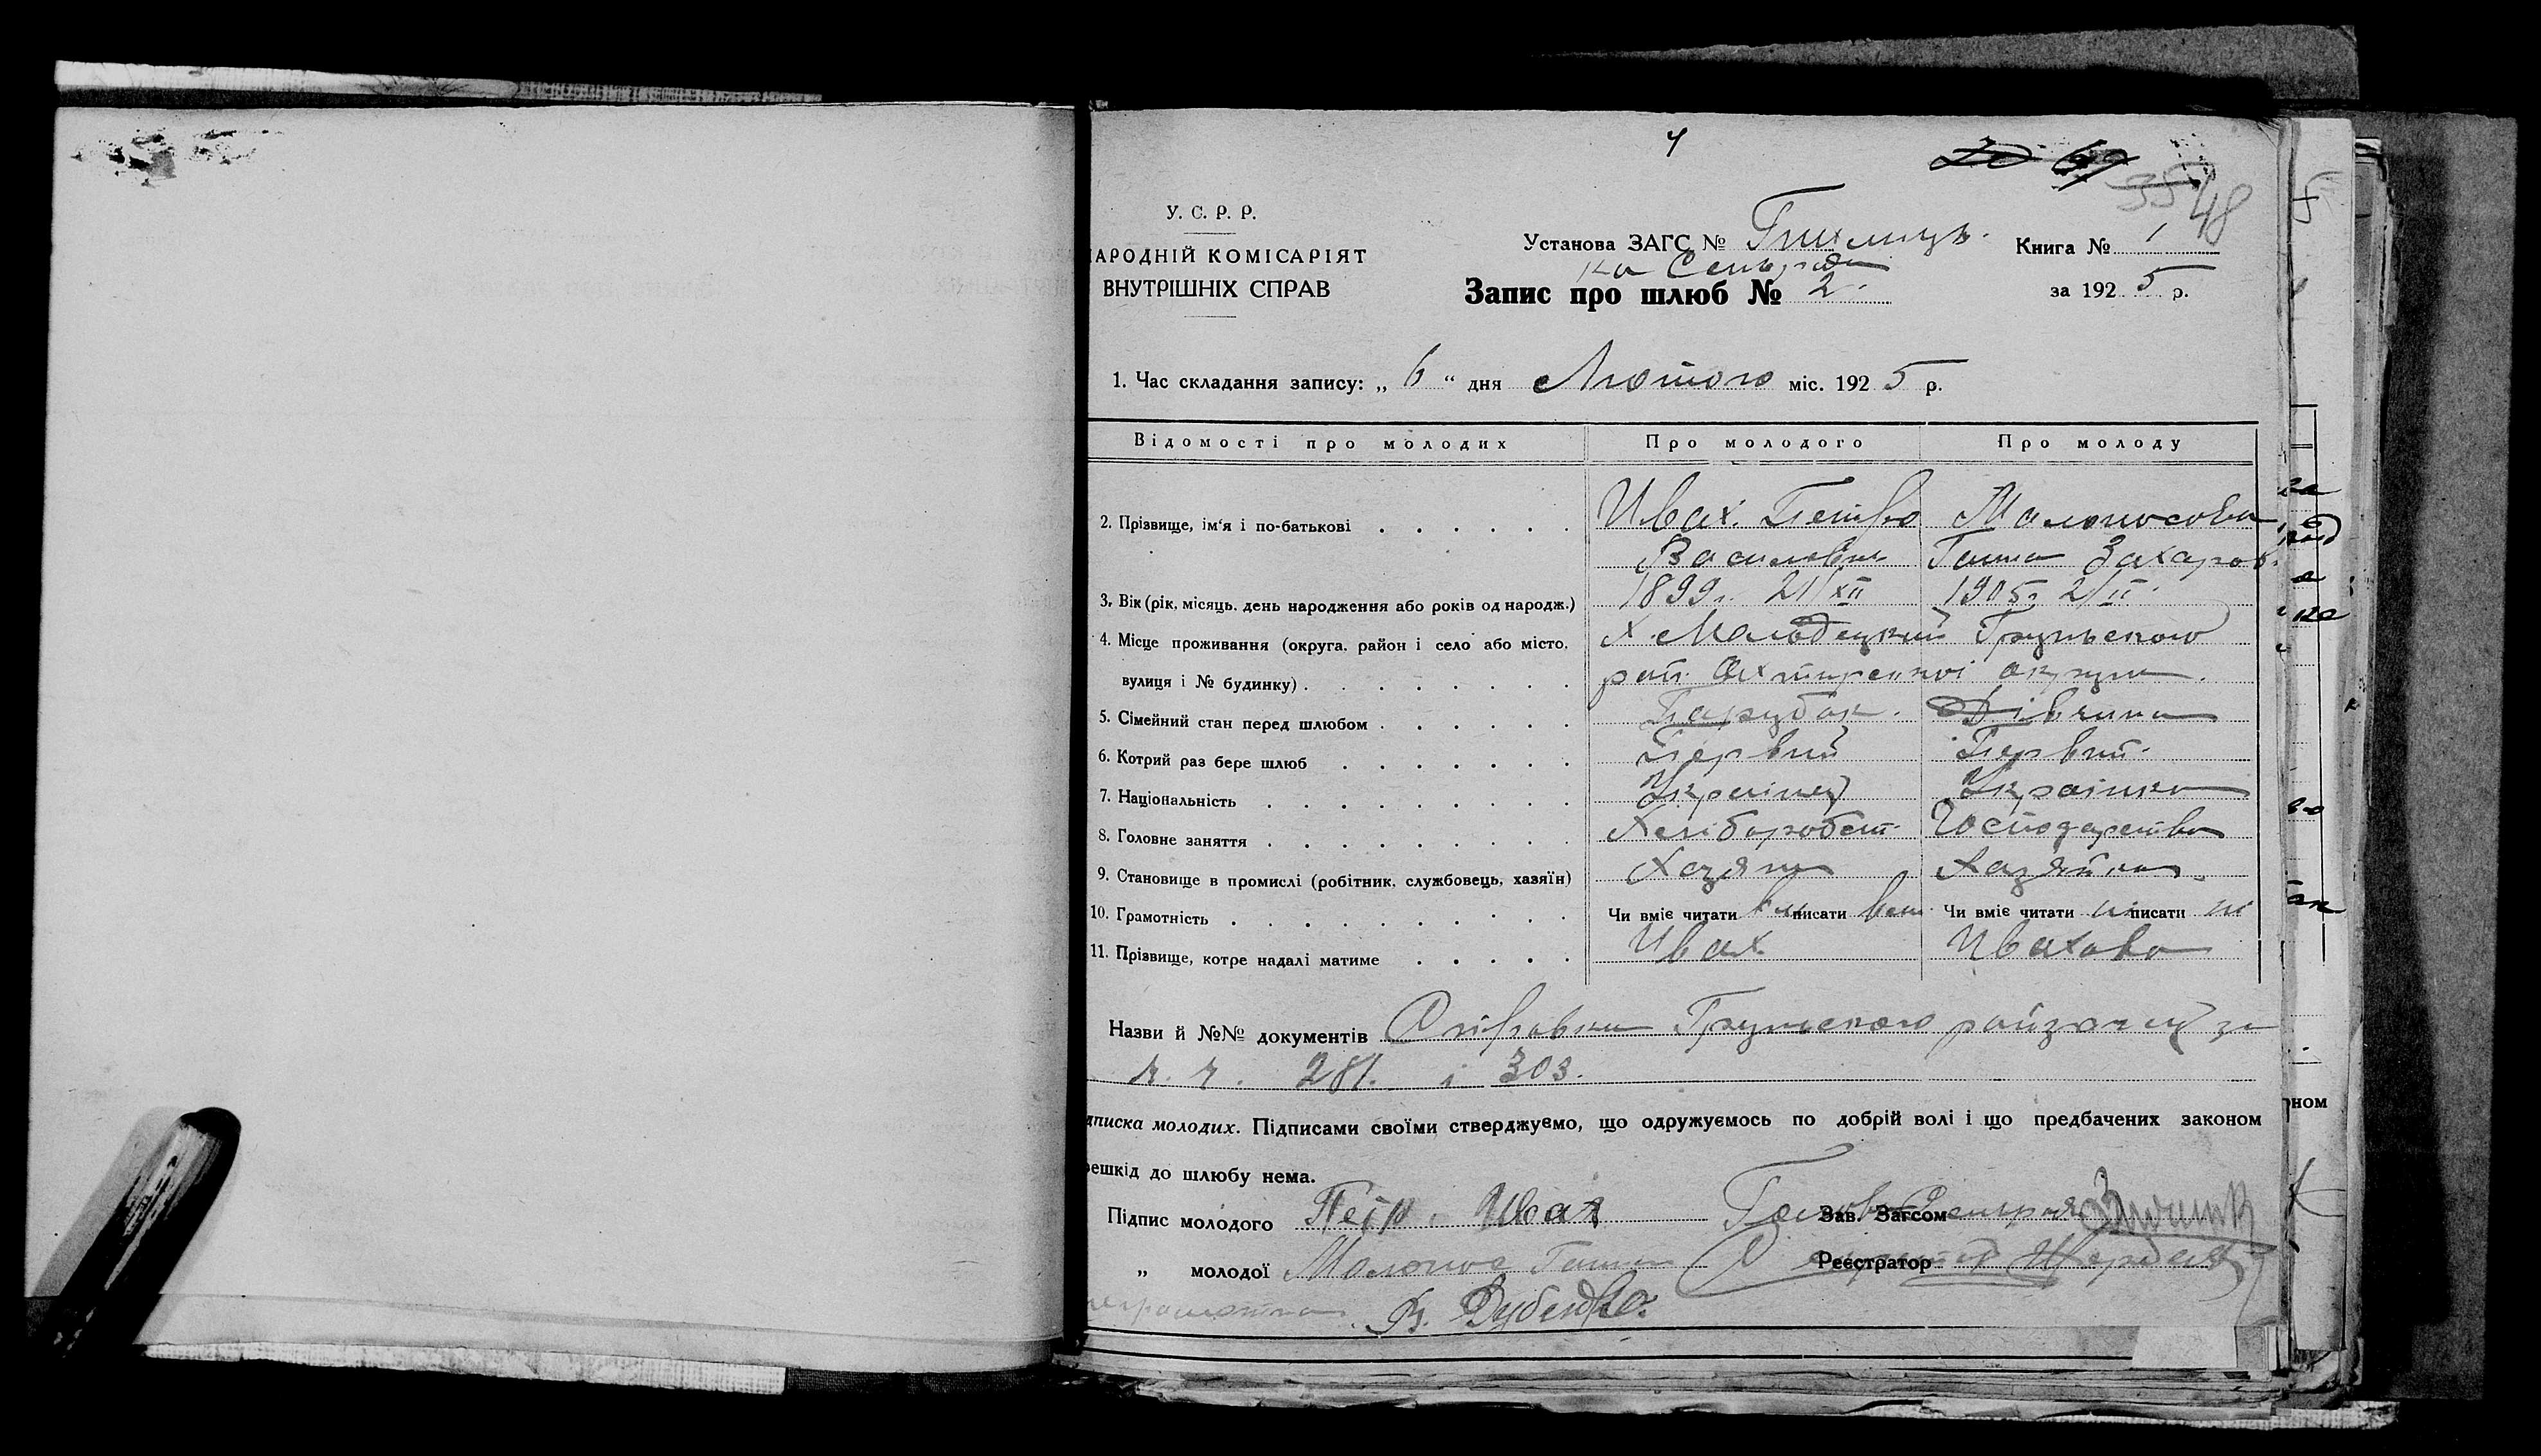 4
20 67
35 48
У. С. Р. Р.
АРОДНІЙ КОМІСАРІЯТ
ВНУТРІШНІХ СПРАВ
Установа ЗАГС №
Книга № 1
Запис про шлюб № 2.
за 1925 р.
1. Час складання запису: „ 6 “ дня Лютого міс. 1925 р.
Відомості про молодих Про молодого Про молоду
2. Прізвище, ім'я і по-батькові Ивах. Петро Малоносова
Василович Ганна Захаров.
3. Вік (рік, місяць, день народження або років од народж.) 1899 г. 21/XII 1905 г. 2/II
4. Місце проживання (округа, район і село або місто, Х. Грунського
вулиця і № будинку) рай. Охтирської округи.
5. Сімейний стан перед шлюбом Парубок. Дівчина
6. Котрий раз бере шлюб Первий Первий.
7. Національність Українец Українка
8. Головне заняття Хліборобст. Господарства
9. Становище в промислі (робітник, службовець, хазяїн) Хазяин Хазяйка
10. Грамотність Чи вміє читати вм писати вм Чи вміє читати ні писати ні
11. Прізвище, котре надалі матиме Ивах Ивахова
Назви й №№ документів Справки Грунського за
ч. ч. 281. і 303.
дписка молодих. Підписами своїми стверджуємо, що одружуємось по добрій волі і що предбачених законом
решкід до шлюбу нема.
Підпис молодого Петр. Ивах Голова Сельради Зав. Загсом
„ молодої Малонос Ганна Секретар Реєстратор
неграмотна В. Дубенко.